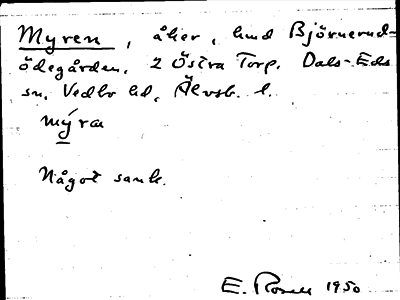 Myren, åker, hmd Björnerud=
ödegården, 2 Östra Torp. Dals-Eds
sn, Vedbo hd, Älvsb. l.
mýra
Något sank.
E. Rosell 1950